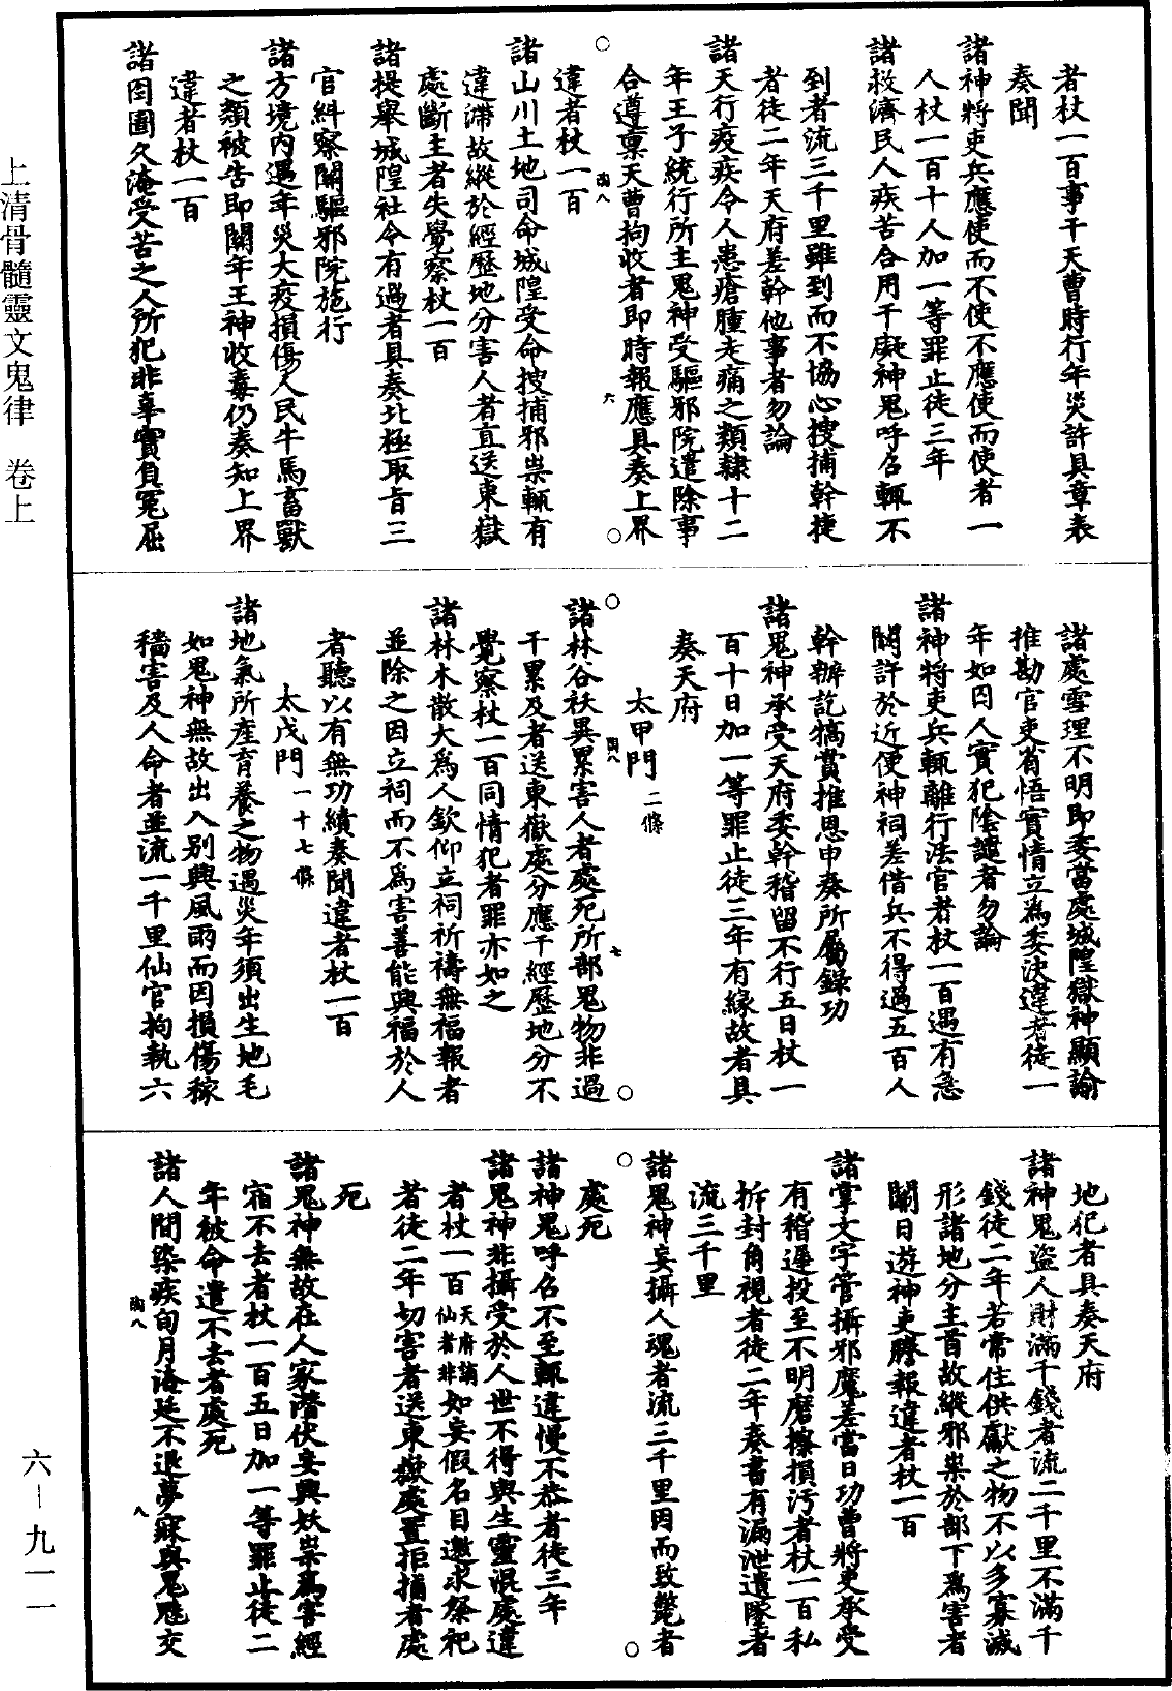 者杖一百事干天曹時行年災許具章表
奏聞
諸神將吏兵應使而不使不應使而使者一
人杖一百十人加一等罪止徒三年
諸救濟民人疾苦合用干礙神鬼呼召輒不
到者流三千里雖到而不協心搜捕幹捷
者徒二年天府差幹他事者勿論
諸天行疫疾令人患瘡腫走痛之類隸十二
年王子統行所主鬼神受驅邪院遣除事
合遵稟天曹拘收者即時報應具奏上界
違者杖一百
諸山川土地司命城隍受命搜捕邪祟輒有
違滯故縱於經歷地分害人者直送東嶽
處斷主者失覺察杖一百
諸提舉城隍社令有過者具奏北極取旨三
官糾察關驅邪院施行
諸方境內遇年災大疫損傷人民牛馬畜獸
之類被告即關年王神收毒仍奏知上界
違者杖一百
諸囹圄久淹受苦之人所犯非辜實負冤屈
諸處雪理不明即委當處城隍獄神顯諭
推勘官吏省悟實情立為委決違者徒一
年如囚人實犯陰譴者勿論
諸神將吏兵輒離行法官者杖一百遇有急
關許於近便神祠差借兵不得過五百人
幹辦訖犒賞推恩申奏所屬錄功
諸鬼神承受天府委幹稽留不行五日杖一
百十日加一等罪止徒三年有緣故者具
奏天府
太甲門二條
諸林谷袄異累害人者處死所部鬼物非過
干累及者送東嶽處分應干經歷地分不
覺察杖一百同情犯者罪亦如之
諸林木散大為人欽仰立祠祈禱無福報者
並除之因立祠而不為害善能興福於人
者聽以有無功績奏聞違者杖一百
太戊門一十七條
諸地氣所產育養之物遇災年須出生地毛
如鬼神無故出入別興風雨而因損傷稼
穡害及人命者並流一千里仙官拘執六
地犯者具奏天府
諸神鬼盜人財滿千錢者流二千里不滿千
錢徒二年若常住供獻之物不以多寡減
形諸地分主首故縱邪祟於部下為害者
關日遊神吏謄報違者杖一百
諸掌文字管攝邪魔差當日功曹將吏承受
有稽遲投至不明磨擦損污者杖一百私
拆封角視者徒二年奏書有漏泄遺墜者
流三千里
諸鬼神妄攝人魂者流三千里因而致斃者
處死
諸神鬼呼召不至輒違慢不恭者徒三年
諸鬼神非攝受於人世不得與生靈混處違
者杖一百天府謫仙者非如妄假名目邀求祭祀
者徒二年切害者送東嶽處置拒捕者處
死
諸鬼神無故在人家潛伏妄興妖祟為害經
宿不去者杖一百五日加一等罪止徒二
年被命遣不去者處死
諸人間染疾旬月淹延不退夢寐與鬼魅交
陶八
六
陶八
七
陶八
八
上清骨髓靈文鬼律 卷上
六—九一一